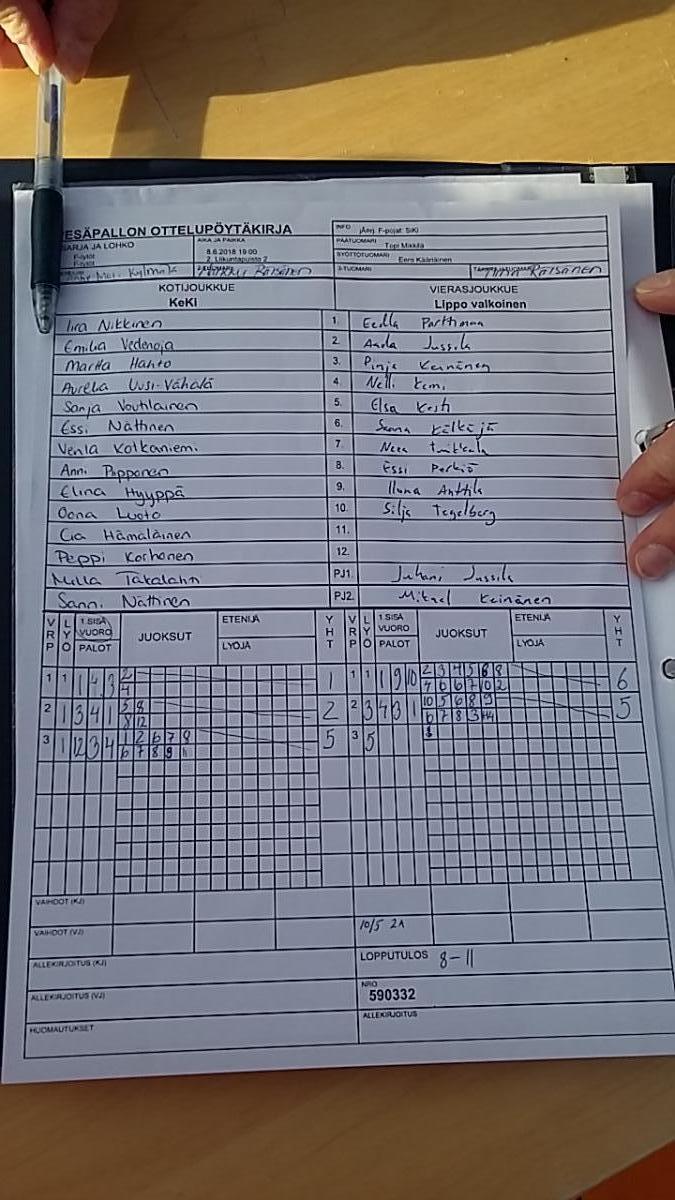 ESÄPALLON OTTELUPÖYTÄKIRJA
ARJA JA LOHKO
F-tytöt
F-tytöt
AIKA JA PAIKKA
8.6.2018 19:00
2. Liikuntapuisto 2
INFO jÄrrj. F-pojat: SiKi
PÄÄTUOMARI Topi Mikkilä
SYÖTTÖTUOMARI Eero Kääriäinen
3-TUOMARI Räisänen
KOTIJOUKKUE
KeKi
VIERASJOUKKUE
Lippo valkoinen
Iira Nikkinen 1. Eedla Parttimaa
Emilia Vedenoja 2. Aada Jussila
Martta Hahto 3. Pinja Keinänen
Aurelia Uusi-Vähälä 4. Nelli Kemi
Sanja Voutilainen 5. Elsa Kesti
Essi Nättinen 6. Sanna Kälkäjä
Venla Kotkaniemi 7. Neea
Anni Pipponen 8. Essi Perkiö
Elina Hyyppä 9. Iluna Anttila
Oona Luoto 10. Silja Tegelberg
Cia Hämäläinen 11.
Peppi Korhonen 12.
Milla Takalahti PJ1. Juhani Jussila
Sanni Nättinen PJ2. Mikael Keinänen
VRP LYÖ 1.SISÄ VUORO PALOT JUOKSUT ETENIJÄ LYÖJÄ YHT VRP LYÖ 1.SISÄ VUORO PALOT JUOKSUT ETENIJÄ LYÖJÄ YHT
1 1 1 4 3 2 1 1 1 1 9 10 2 3 4 5 6 8 6
4 4 6 6 7 10 2
2 1 3 4 1 5 8 2 2 3 4 3 1 10 5 6 8 9 5
8 12 6 7 8 3
3 1 2 3 4 1 2 6 7 8 5 3 5
6 7 8 9 11
VAIHDOT (KJ)
VAIHDOT (VJ) 10/5 2A
ALLEKIRJOITUS (KJ)
LOPPUTULOS 8-11
ALLEKIRJOITUS (VJ)
NRO
590332
HUOMAUTUKSET
ALLEKIRJOITUS